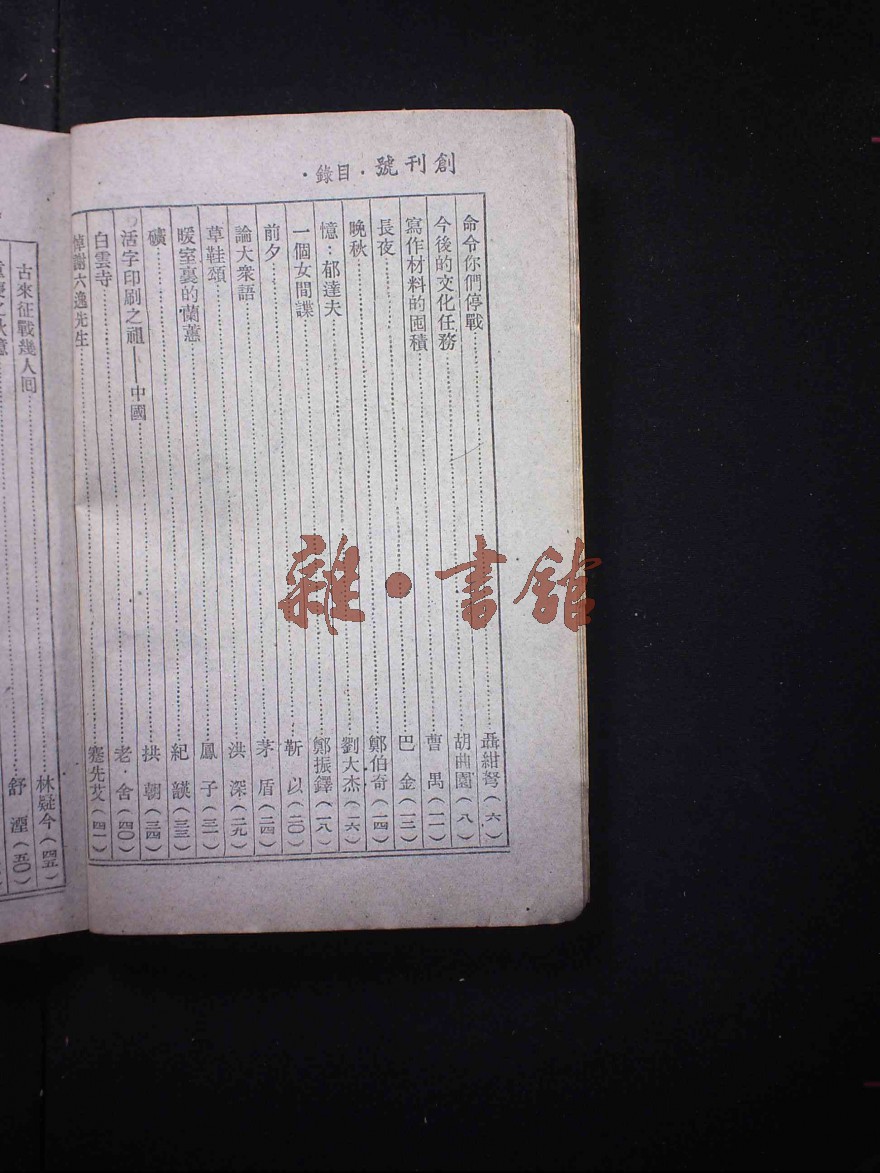 創刊號·目錄·
命令你們停戰……聶紺弩(六)
今後的文化任務……胡曲園(八)
寫作材料的囤積……曹禺(一一)
長夜……巴金(一二)
晚秋……鄭伯奇(一四)
憶:郁達夫……劉大杰(一六)
一個女間諜……鄭振鐸(一八)
前夕……靳以(二〇)
論大衆語……茅盾(二四)
草鞋頌……洪深(二九)
暖室裏的蘭蕙……鳳子(三一)
礦……紀鍈(三三)
活字印刷之祖——中國……拱朝(三四)
白雲寺……老·舍(四〇)
悼謝六逸先生……蹇先艾(四一)
古來征戰幾人囘……林疑今(四五)
舒湮(五〇)
雜·書館